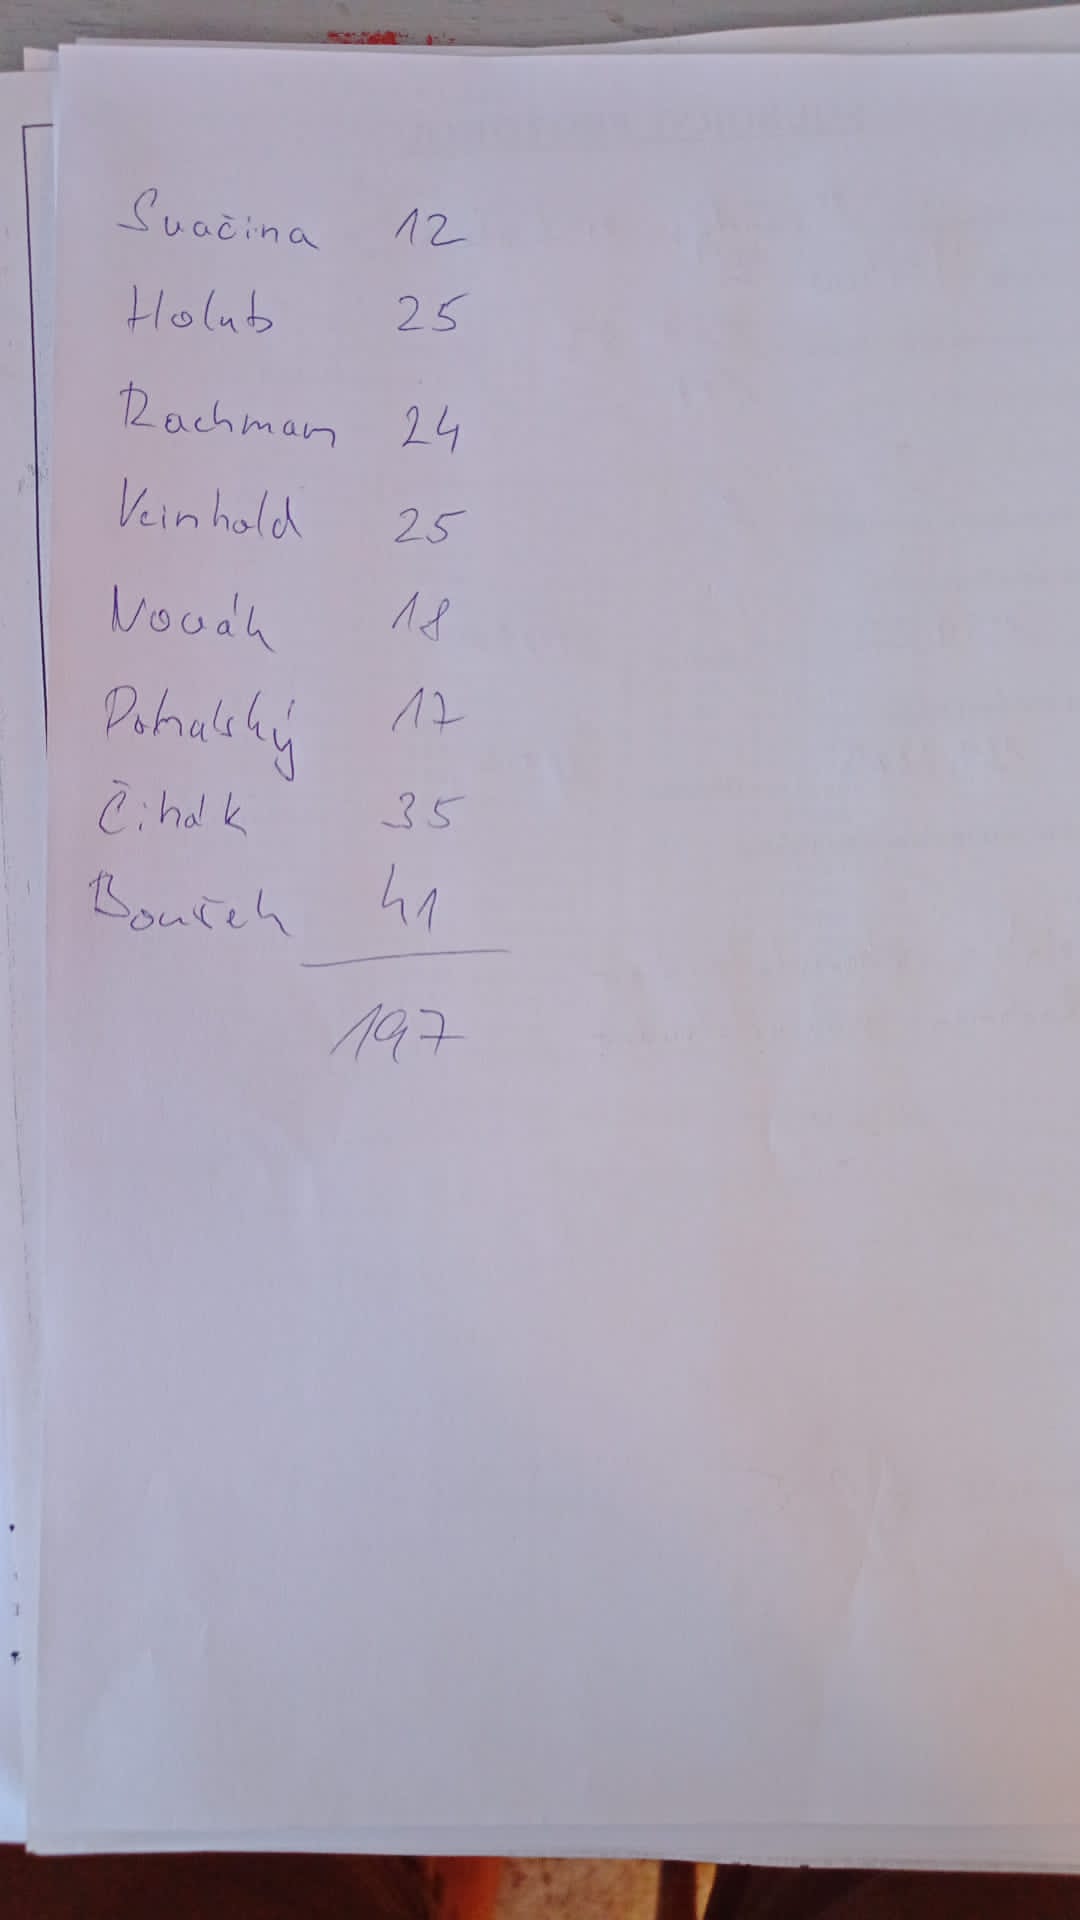 Svačina 12
Holub 25
Rachman 24
Veinhold 25
Novák 18
17
Čihák 35
Bouček 41
197